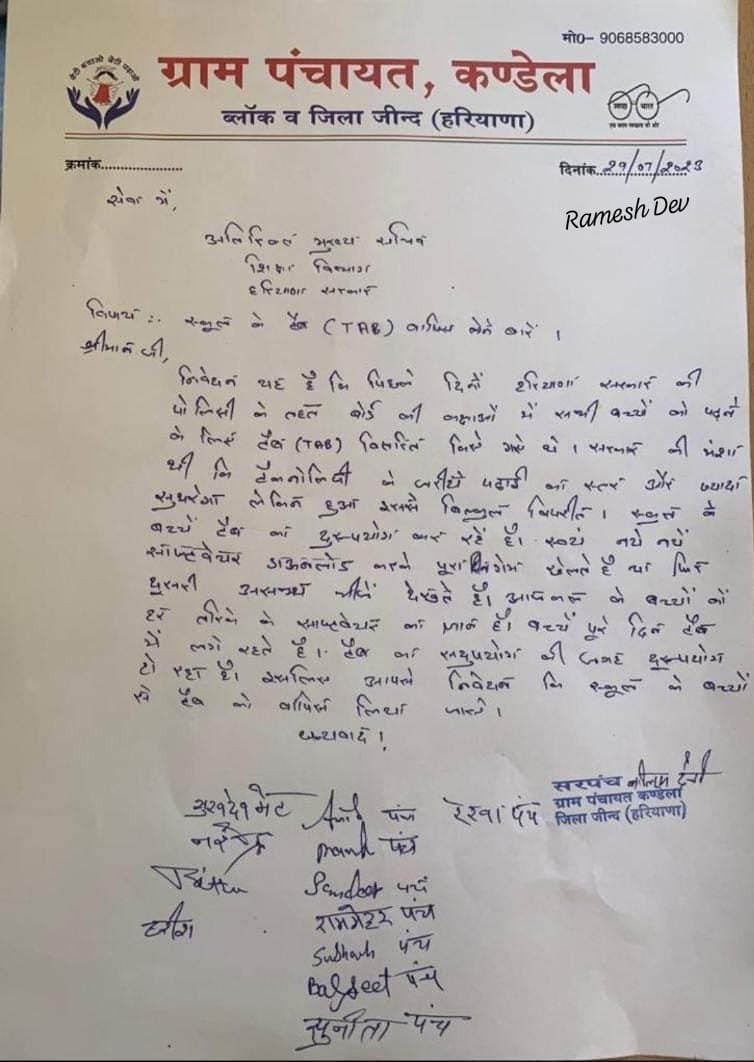 मो0– 9068583000
बेटी बचाओ बेटी पढ़ाओ
ग्राम पंचायत, कण्डेला
ब्लॉक व जिला जीन्द (हरियाणा)
स्वच्छ भारत
एक कदम स्वच्छता की ओर
क्रमांक.....................
दिनांक..29/07/2023
Ramesh Dev
सेवा में,
अतिरिक्त मुख्य सचिव
शिक्षा विभाग
हरियाणा सरकार
विषय :- स्कूल के टैब (TAB) वापिस लेने बारें ।
श्रीमान जी,
निवेदन यह है कि पिछले दिनों हरियाणा सरकार की
पोलिसी के तहत बोर्ड की कक्षाओं में सभी बच्चों को पढ़ने
के लिए टैब (TAB) वितरित किये गये थे । सरकार की मंशा
थी कि टैक्नोलिजी के जरीये पढाई का स्तर और ज्यादा
सुधरेगा लेकिन हुआ इससे बिल्कुल विपरीत । स्कूल के
बच्चें टैब का दुरूपयोग कर रहें है। स्वयं नये नयें
सॉफ्टवेयर डाऊनलोड करके पूरा दिन गेम खेलते है या फिर
दुसरी असभ्य चीजें देखते है। आजकल के बच्चों को
हर तरिके के साफ्टवेयर का ज्ञान है। बच्चें पूरे दिन टैब
में लगे रहते है। टैब का सदुपयोग की जगह दुरूपयोग
हो रहा है। इसलिए आपसे निवेदन कि स्कूल के बच्चों
से टैब को वापिस लिया जाये।
धन्यवाद !
सरपंच नीलम देवी
ग्राम पंचायत कण्डेला
जिला जीन्द (हरियाणा)
सुखदेव मेट पंच रेखा पंच
पंच
Sandeep पंच
राममेहर पंच
Subhash पंच
Baljeet पंच
सुनीता पंच